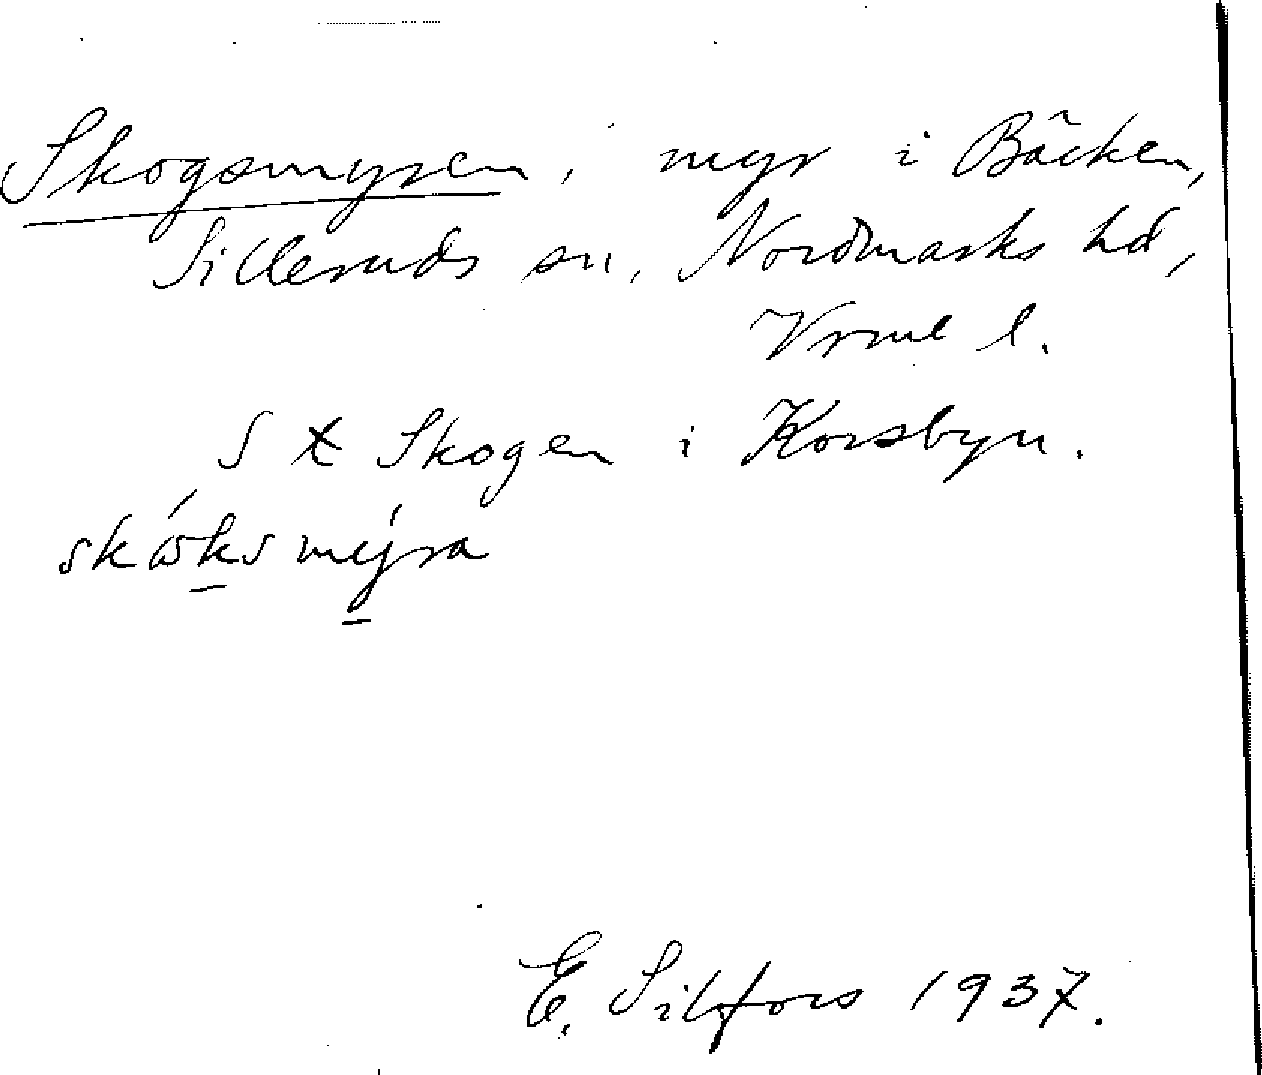 Skogsmyren, myr i Bäcken,
Silleruds sn, Nordmarks hd,
Vrml l.
S x Skogen i Korsbyn.
skóksmýra
E. Silfors 1937.